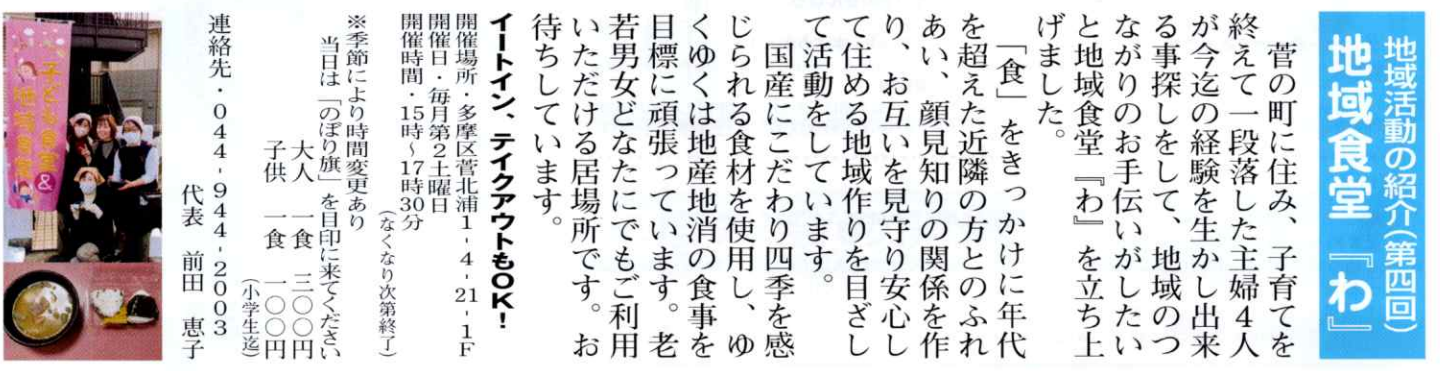 地域活動の紹介(第四回)
地域食堂『わ』
菅の町に住み、子育てを
終えて一段落した主婦4人
が今迄の経験を生かし出来
る事探しをして、地域のつ
ながりのお手伝いがしたい
と地域食堂『わ』を立ち上
げました。
「食」をきっかけに年代
を超えた近隣の方とのふれ
あい、顔見知りの関係を作
り、お互いを見守り安心し
て住める地域作りを目ざし
て活動をしています。
国産にこだわり四季を感
じられる食材を使用し、ゆ
くゆくは地産地消の食事を
目標に頑張っています。老
若男女どなたにでもご利用
いただける居場所です。お
待ちしています。
イートイン、テイクアウトもOK!
開催場所・多摩区菅北浦1-4-21-1F
開催日・毎月第2土曜日
開催時間・15時~17時30分
(なくなり次第終了)
※季節により時間変更あり
当日は「のぼり旗」を目印に来てください
大人 一食 三〇〇円
子供 一食 一〇〇円
(小学生迄)
連絡先・044-944-2003
代表 前田 恵子
子ども食堂&
地域食堂